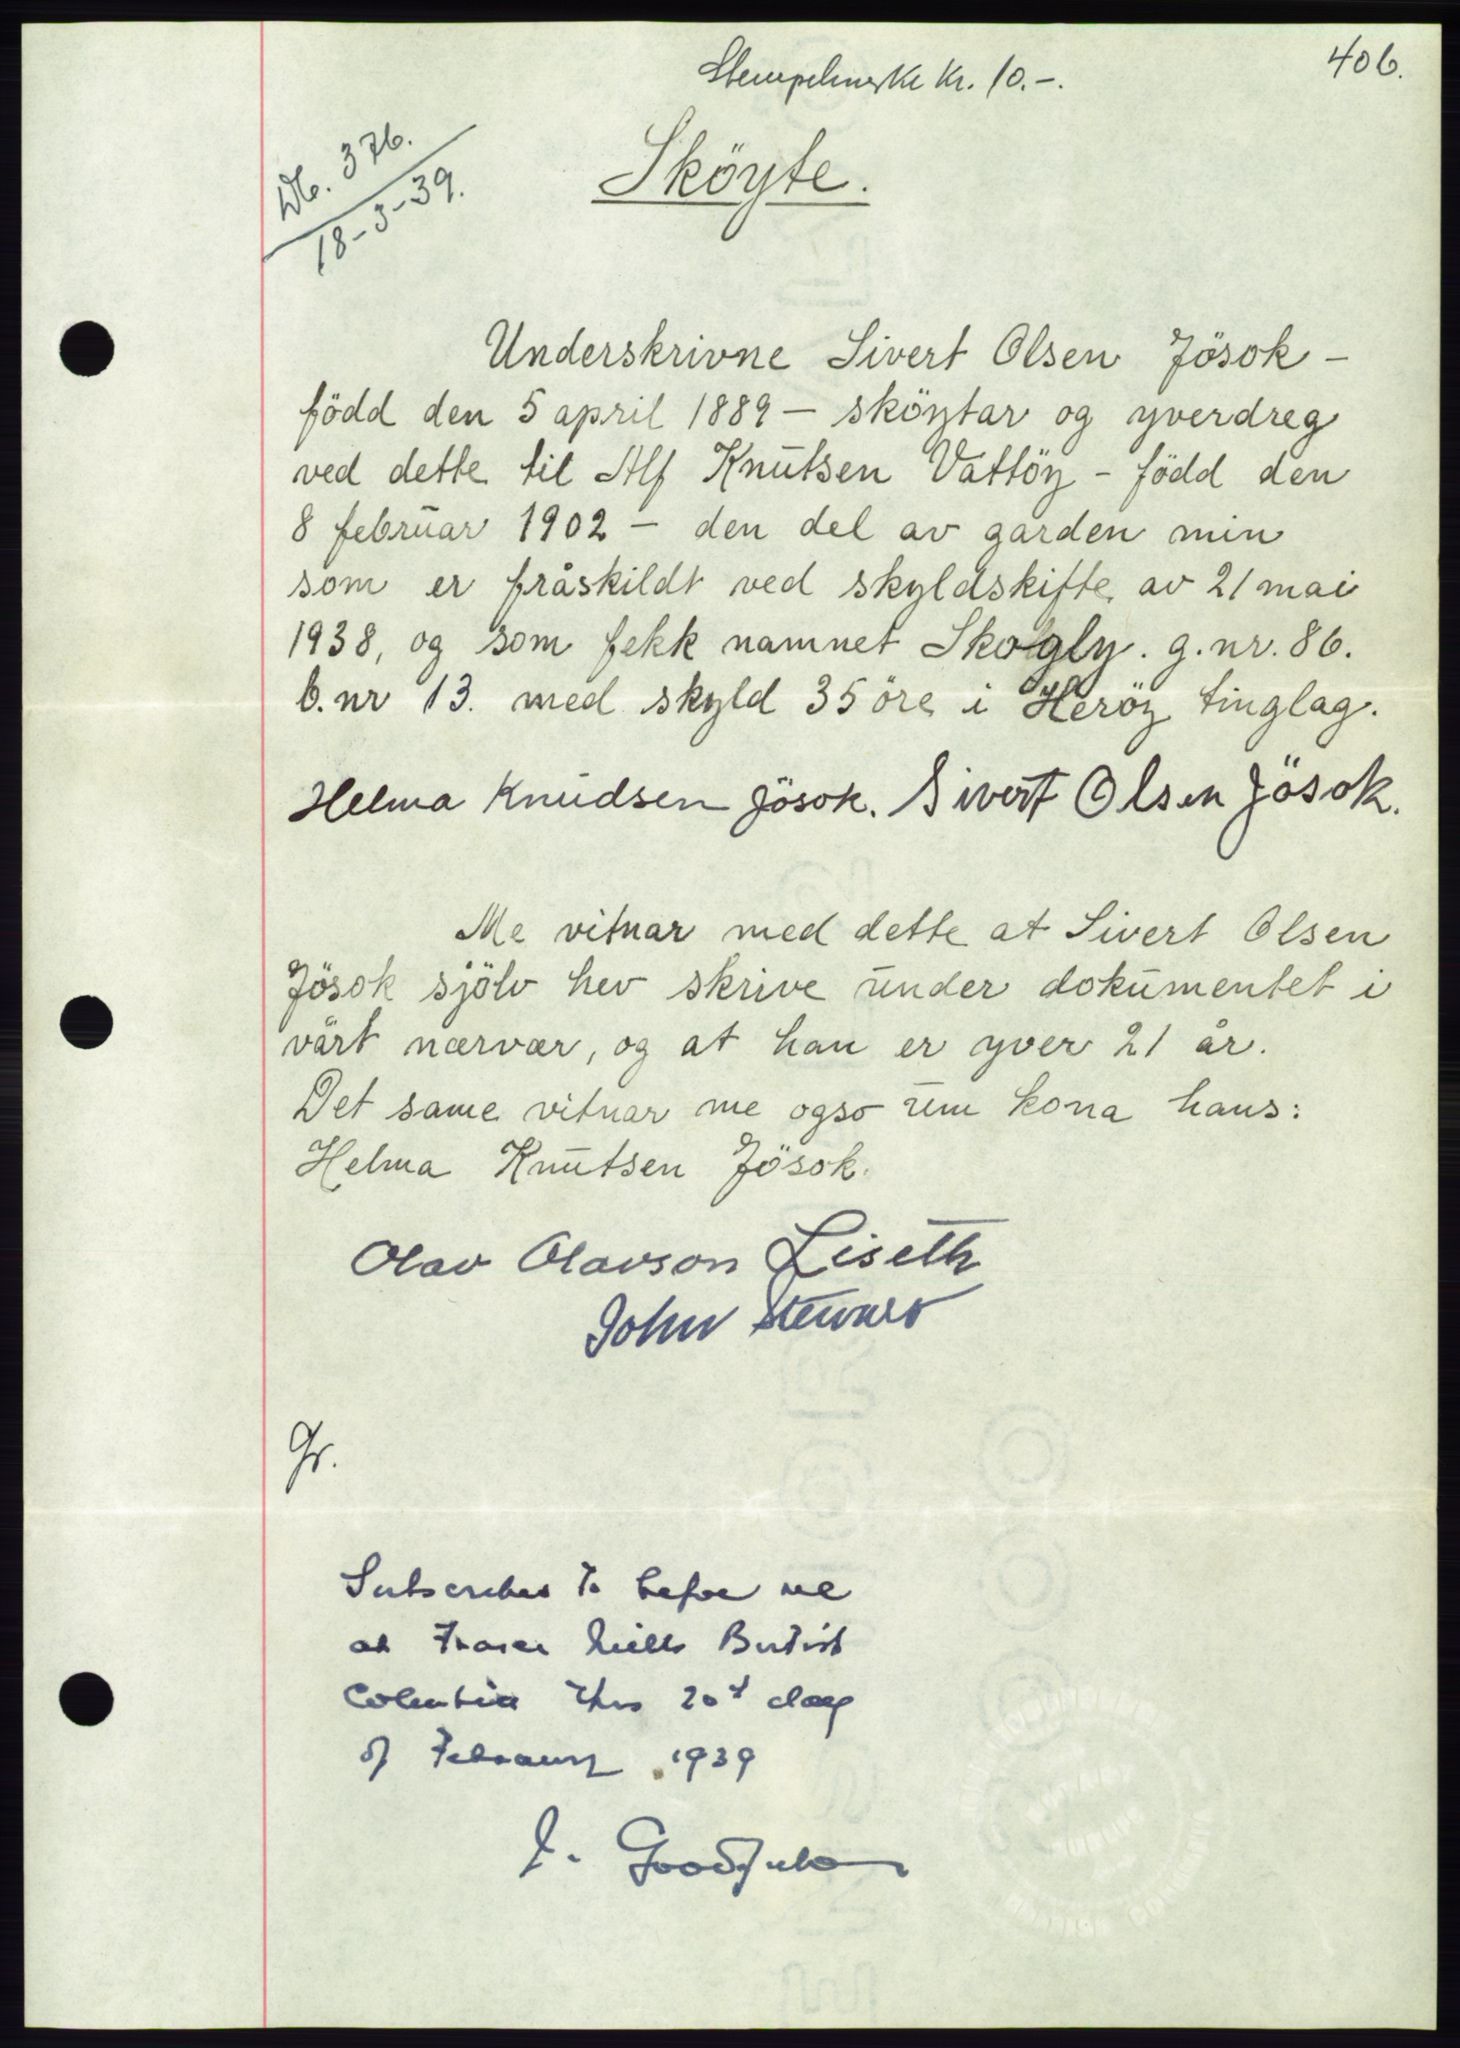 406.
Stempelmerke kr. 10.-.
Db. 376.
18-3-39.
Sköyte.
Underskrivne Sivert Olsen Jösok -
född den 5 april 1889 - sköytar og yverdreg
ved dette til Alf Knutsen Vattöy - född den
8 februar 1902 - den del av garden min
som er fråskildt ved skyldskifte av 21 mai
1938, og som fekk namnet Skogly. g.nr. 86.
b.nr 13. med skyld 35 öre i Heröy tinglag.
Helma Knudsen Jösok. Sivert Olsen Jösok.
Me vitnar med dette at Sivert Olsen
Jösok sjölv hev skrive under dokumentet i
vårt nærvær, og at han er yver 21 år.
Det same vitnar me ogso um kona hans:
Helma Knutsen Jösok.
Olav Olavson Liseth
John Stewart
Gr.
Subscribed to before me
at Fraser Mills British
Columbia this 20th day
of February 1939
J.